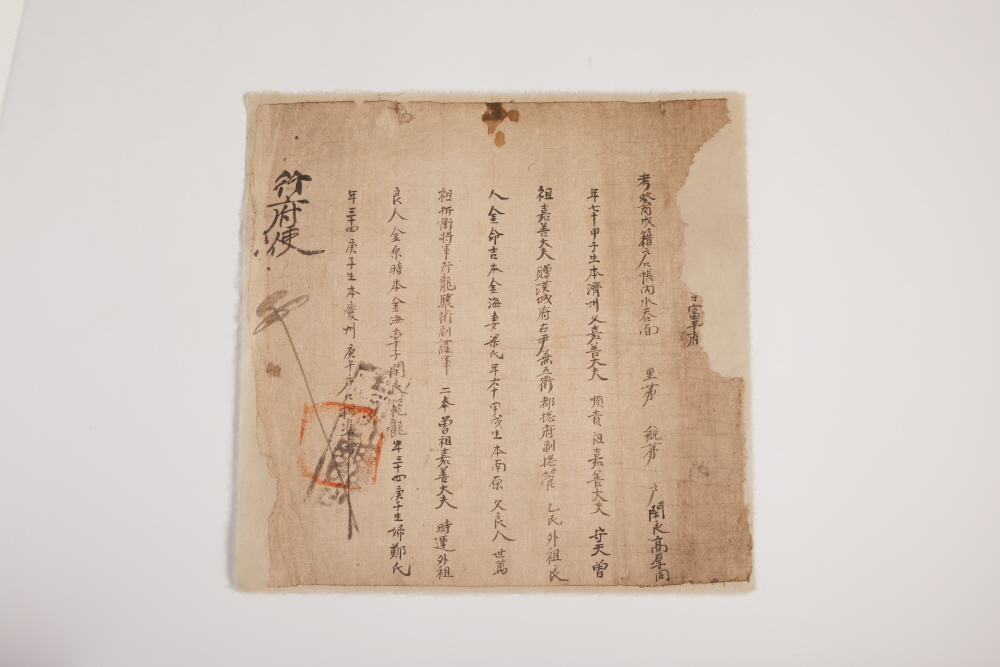 富平府
考癸酉成籍戶口帳內水呑面 里第 統第 戶閑良高厚同
年七十甲子生本濟州父嘉善大夫 順貴 祖嘉善大夫 守天曾
祖嘉善大夫贈漢城府右尹兼五衛都摠府副摠管 乙民外祖良
人金命吉本金海妻梁氏年六十甲戌生本南原 父良人 世萬
祖折衝將軍行龍驤衛副護軍 二奉曾祖嘉善大夫 時運外祖
良人金 時本金海率子閑良 龍年三十四庚子生婦鄭氏
年三十四庚子生本慶州 庚午戶口相準
行府使